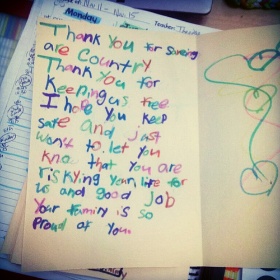 Nov. 11 - Nov. 15
Monday
Teacher
Thank You for Serving
are Country
Thank You for
keeping us free
I hope You keep
safe and Just
want to let You
kno that you are
riskying your life for
us and good job
Your family is so
Proud of You.